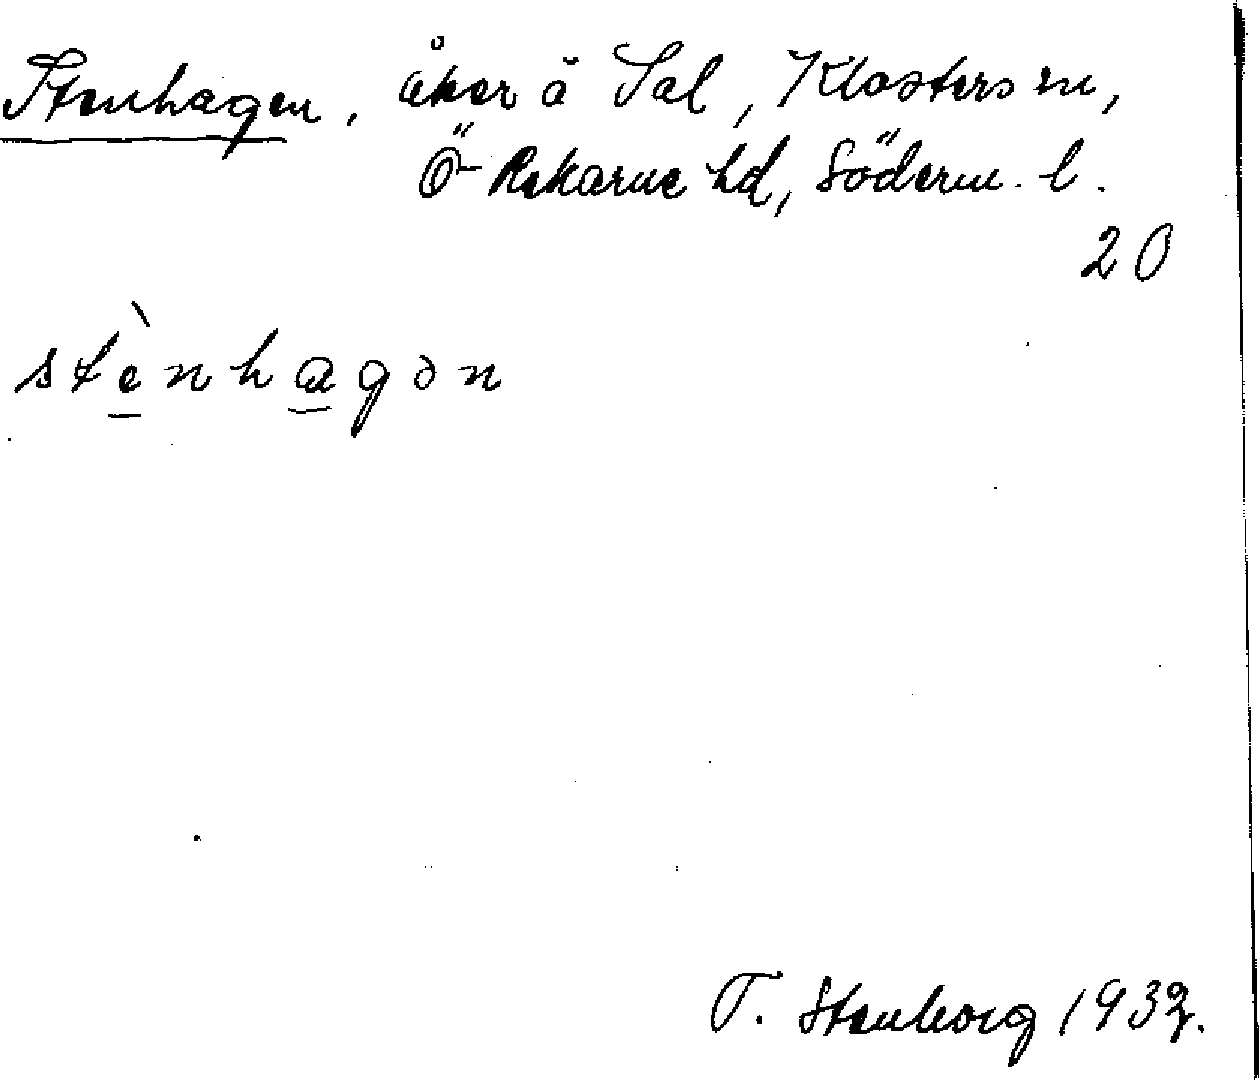 Stenhagen, åker å Sal, Klosters sn,
Ö-Rekarne hd, Söderm. l.
20
stènhagən
T. Stenborg 1932.